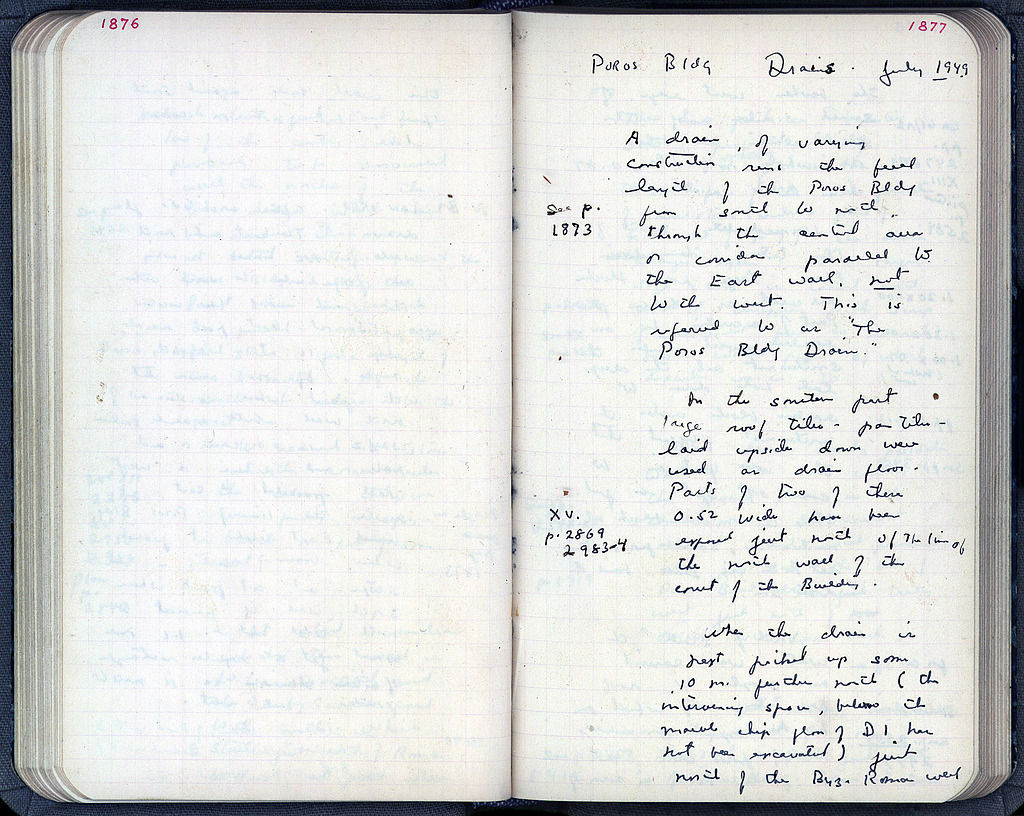 1876
1877
Poros Bldg Drains. July 1949
A drain, of varying
construction runs the full
length of the Poros Bldg
see p.
1873
from south to north,
through the central area
or corridor parallel to
the East wall, not
to the west This is
referred to as "The
Poros Bldg Drain."
In the southern part
large roof tiles - pan tiles -
laid upside down were
used as drain floor.
Parts of two of these
XV.
p. 2869
2983-4
0.52 wide have been
exposed just north of the line of
the north wall of the
court of the Building.
When the drain is
next picked up some
10 m. further north (the
intervening space, below the
marble chip floor of D1 has
not been excavated) just
north of the Byz. Roman wall